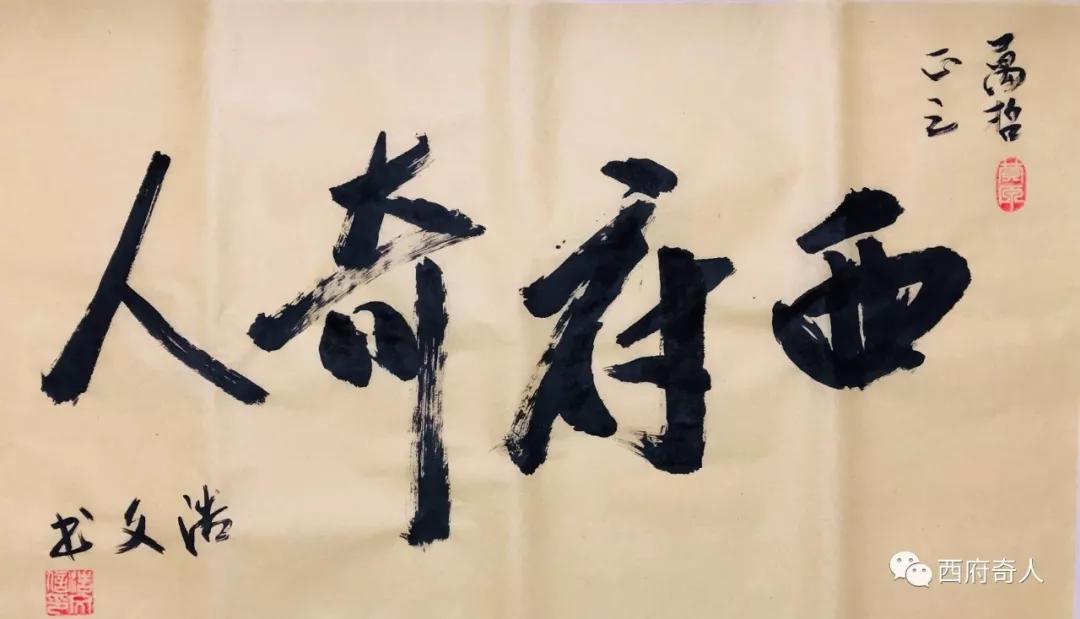 万哲
正之
西府奇人
浩文书
西府奇人